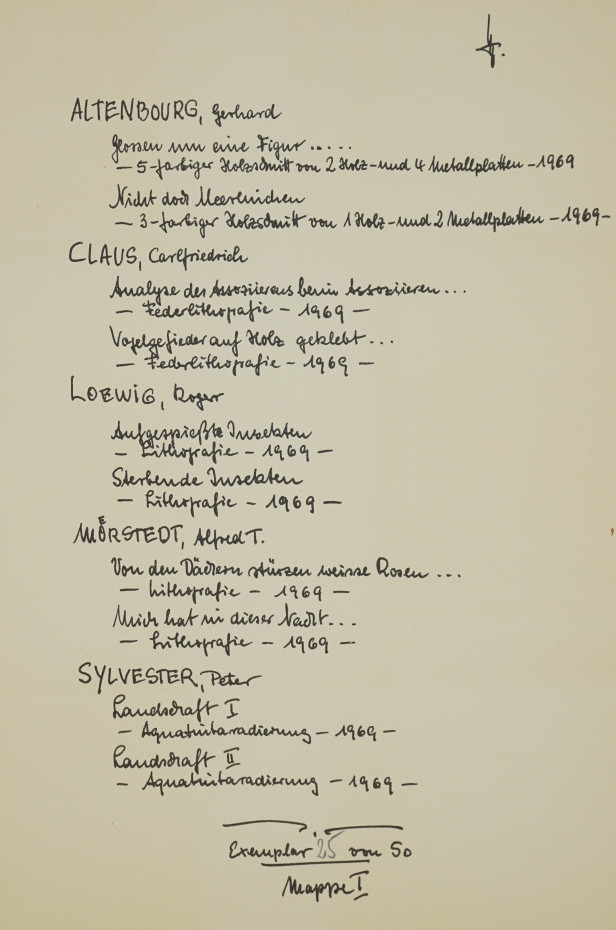 ALTENBOURG, Gerhard
Glossen um eine Figur .....
— 5-farbiger Holzschnitt von 2 Holz- und 4 Metallplatten – 1969
Nicht doch Meerlinchen
— 3-farbiger Holzschnitt von 1 Holz- und 2 Metallplatten – 1969 –
CLAUS, Carlfriedrich
Analyse des Assoziierens beim Assoziieren ...
— Federlithografie – 1969 —
Vogelgefieder auf Holz geklebt ...
— Federlithografie – 1969 —
LOEWIG, Roger
Aufgespießte Insekten
— Lithografie – 1969 —
Sterbende Insekten
— Lithografie – 1969 —
MÖRSTEDT, Alfred T.
Von den Dächern stürzen weisse Rosen ...
— Lithografie – 1969 —
Mich hat in dieser Nacht ...
— Lithografie – 1969 —
SYLVESTER, Peter
Landschaft I
– Aquatintaradierung – 1969 –
Landschaft II
– Aquatintaradierung – 1969 —
Exemplar 25 von 50
Mappe I